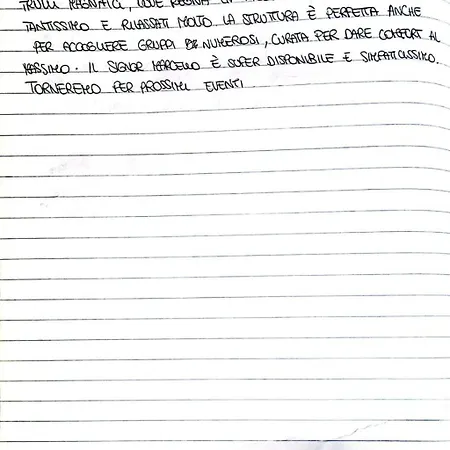 TRULLI MAGNIFICI, DOVE REGNA
TANTISSIMO E RILASSATI MOLTO. LA STRUTTURA È PERFETTA ANCHE
PER ACCOGLIERE GRUPPI PIÙ NUMEROSI, CURATA PER DARE COMFORT AL
MASSIMO. IL SIGNOR MARCELLO È SUPER DISPONIBILE E SIMPATICISSIMO.
TORNEREMO PER PROSSIMI EVENTI